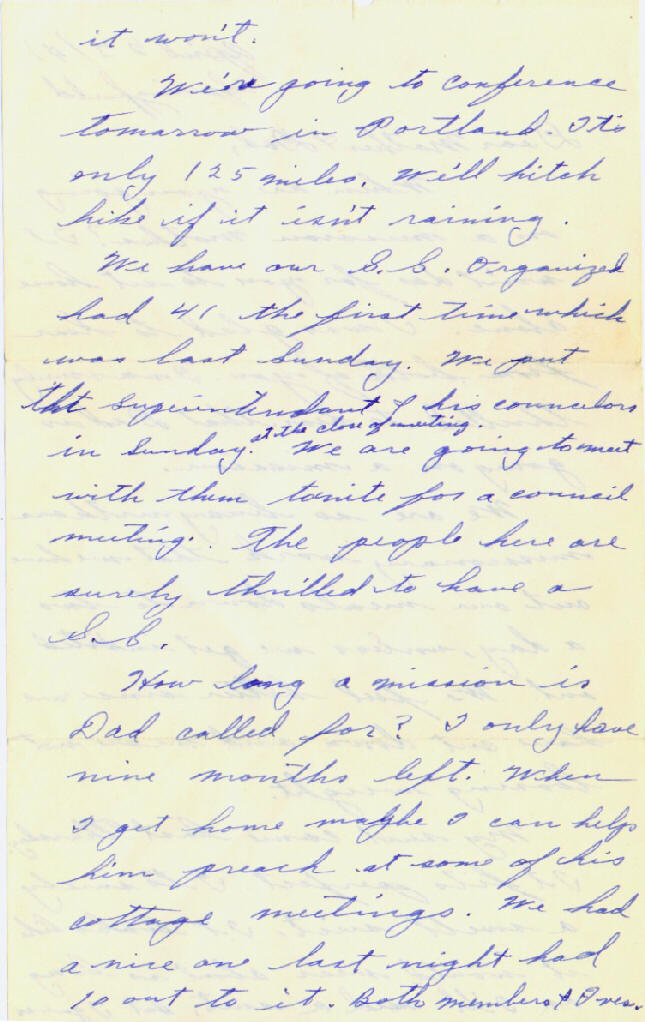 it won't.
We're going to conference
tomarrow in Portland. It's
only 125 miles. We'll hitch
hike if it isn't raining.
We have our S.S. Organized
had 41 the first time which
was last Sunday. We put
tht Superintendant & his councelors
in Sunday. at the close of meeting. We are going to meet
with them tonite for a council
meeting. The people here are
surely thrilled to have a
S.S.
How long a mission is
Dad called for? I only have
nine months left. When
I get home maybe I can help
him preach at some of his
cottage meetings. We had
a nice one last night had
10 out to it. Both members &